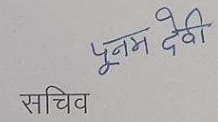 पूनम देवी
सचिव